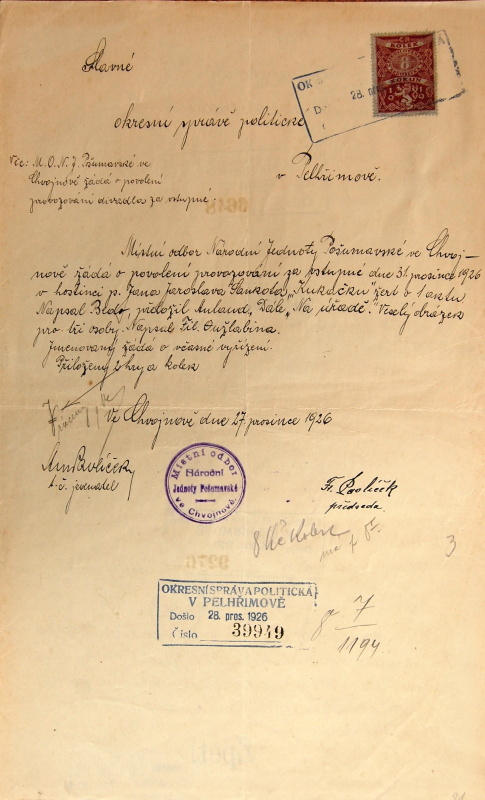 Slavné
okresní správě politické
v Pelhřimově.
Věc: M.O.N.J. Pošumavské ve
Chvojnově žádá o povolení
provozování divadla za vstupné.
Místní odbor Národní Jednoty Pošumavské ve Chvoj-
nově žádá o povolení provozování za vstupné dne 31. prosince 1926
v hostinci p. Jana Jaroslava "Kukačku" žert o 1 aktu
Napsal přeložil Dále, "Na úřadě." Veselý obrázek
pro tři osoby. Napsal Fil.
Jmenovaný žádá o včasné vyřízení.
Přiloženy 2 hry a kolek
Ve Chvojnově dne 27. prosince 1926
t.č. jednatel
Místní odbor
Národní
Jednoty Pošumavské
ve Chvojnově.
Fr. Pavlíček
předseda
8 Kč kolek
3
OKRESNÍ SPRÁVA POLITICKÁ
V PELHŘIMOVĚ
Došlo 28. pros. 1926
Číslo 39949
7
1194
KOLEK
8
KORUN
28.